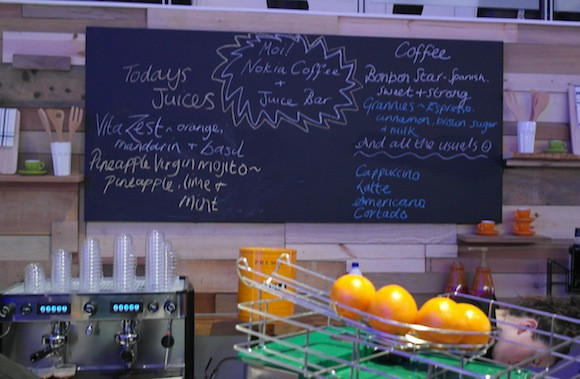 Moi!
Nokia Coffee
+
Juice Bar
Todays
Juices
Vita Zest ~ orange,
mandarin + basil
Pineapple Virgin mojito ~
pineapple, lime +
mint
Coffee
Bonbon Star - Spanish.
sweet + strong
Grannies ~ Espresso,
cinnamon, brown sugar
+ milk
And all the usuals
Cappuccino
Latte
Americano
Cortado